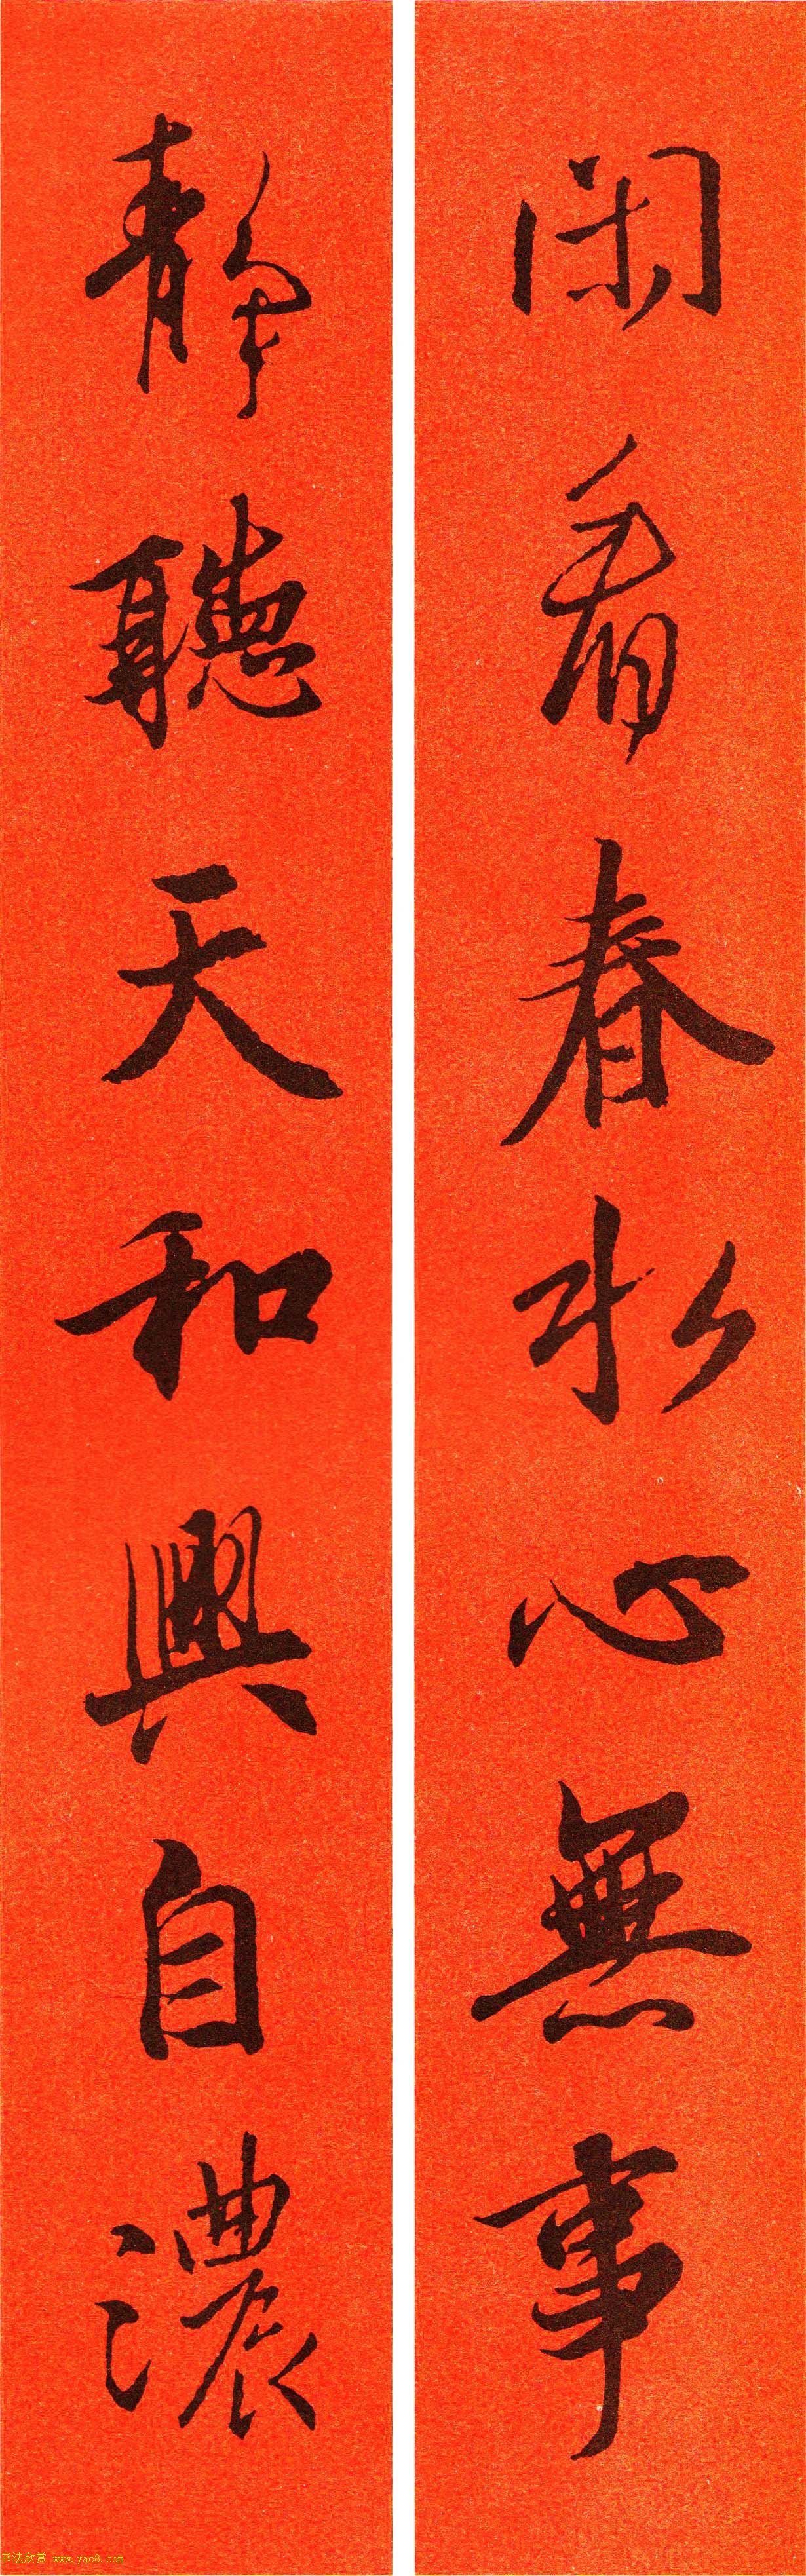 閑看春水心無事
静聽天和興自濃
书法欣赏 www.yac8.com